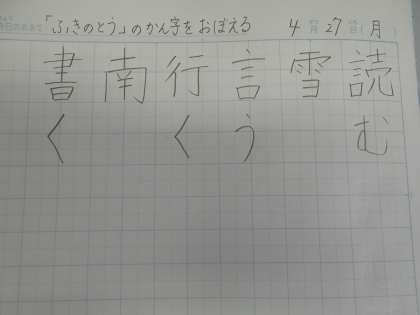 「ふきのとう」のかん字をおぼえる 4月27日(月)
書 南 行 言 雪 読
く く う む